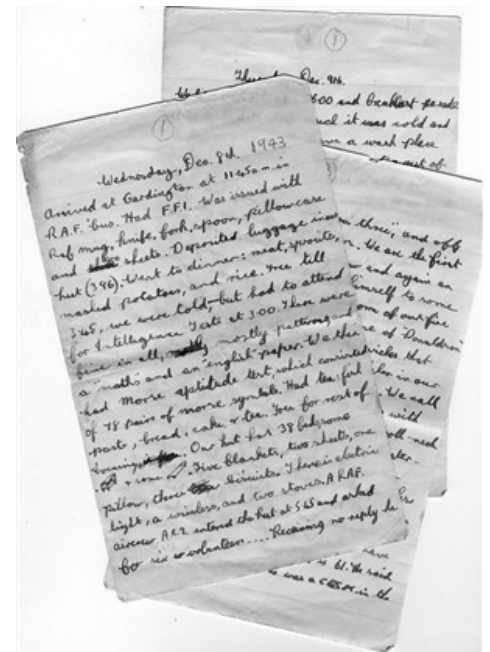 ①
Thursday Dec. 9th.
6.00 and Breakfast parade
it was cold and
a wash place
out of
①
Wednesday, Dec. 8th. 1943
Arrived at Cardington at 11.45 a.m in
R.A.F. 'bus. Had F.F.I. Was issued with
Raf mug, knife, fork, spoon, pillowcase
and sheets. Deposited luggage in
hut (396). Went to dinner: meat, sprouts,
mashed potatoes, and rice. Free till
3.45, we were told, but had to attend
for Intelligence Tests at 3.00. There were
five in all, mostly patterns, and
a "maths" and an "english" paper. We then
had Morse aptitude test, which consisted
of 78 pairs of morse symbols. Had tea: fish
paste, bread, cake, & tea. Free for rest of
evening. Our hut has 38 beds, some
some Five blankets, two sheets, one
pillow, three biscuits. There is electric
light, a wireless, and two stoves. A R.A.F.
aircrew A.C.2. entered the hut at 5.45 and asked
for six volunteers.... Receiving no reply he
three", and off
We are the first
and again an
himself to some
of our five
of 'Donaldson
that
in our
We call
with
roll-neck
have
is 61. He said
was a in the